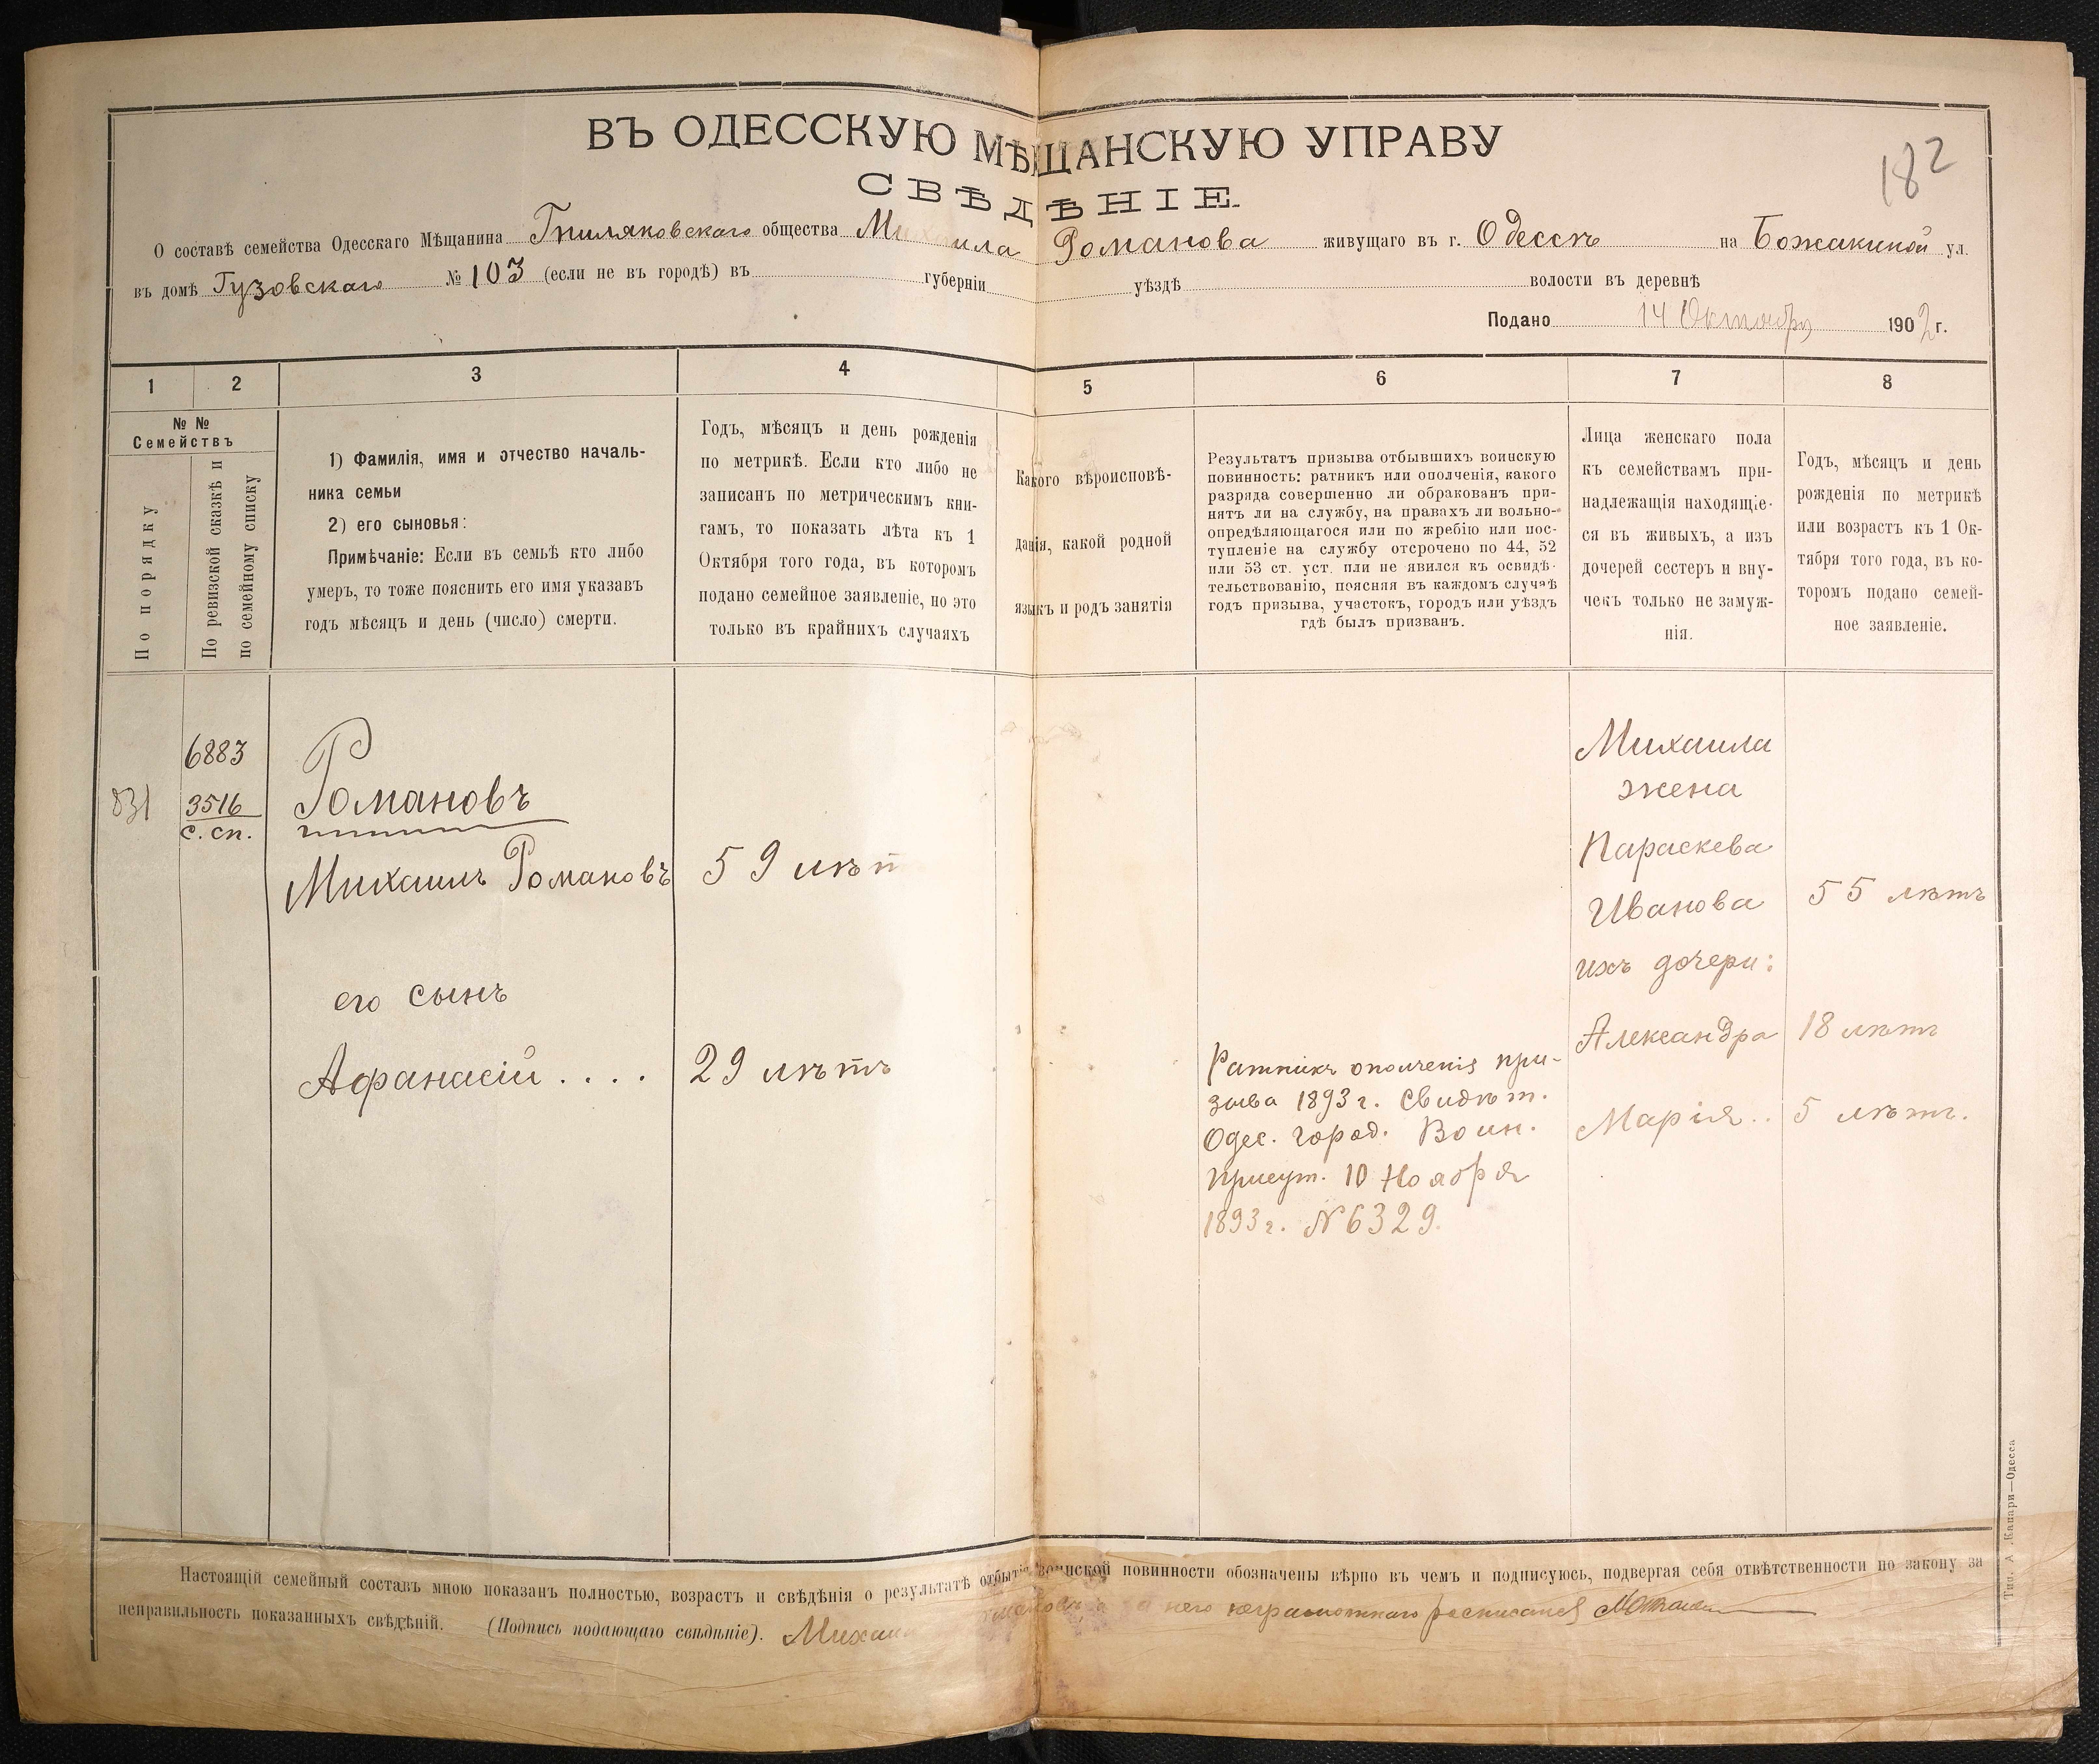 182
ВЪ ОДЕССКУЮ МѢЩАНСКУЮ УПРАВУ
СВѢДѢНІЕ.
О составѣ семейства Одесскаго Мѣщанина Гниляковскаго общества Михаила Романова живущаго въ г. Одессѣ на ул.
въ домѣ Гузовскаго № 103 (если не въ городѣ) въ губерніи уѣздѣ волости въ деревнѣ
Подано 14 Октября 1902 г.
1
2
3
4
5
6
7
8
№ №
Семействъ
По порядку
По ревизской сказкѣ и
по семейному списку
1) Фамилія, имя и отчество началь-
ника семьи
2) его сыновья:
Примѣчаніе: Если въ семьѣ кто либо
умеръ, то тоже пояснить его имя указавъ
годъ мѣсяцъ и день (число) смерти.
Годъ, мѣсяцъ и день рожденія
по метрикѣ. Если кто либо не
записанъ по метрическимъ кни-
гамъ, то показать лѣта къ 1
Октября того года, въ которомъ
подано семейное заявленіе, но это
только въ крайнихъ случаяхъ
Какого вѣроисповѣ-
данія, какой родной
языкъ и родъ занятія
Результатъ призыва отбывшихъ воинскую
повинность: ратникъ или ополченія, какого
разряда совершенно ли обракованъ при-
нятъ ли на службу, на правахъ ли вольно-
опредѣляющагося или по жребію или пос-
тупленіе на службу отсрочено по 44, 52
или 53 ст. уст. или не явился къ освидѣ-
тельствованію, поясняя въ каждомъ случаѣ
годъ призыва, участокъ, городъ или уѣздъ
гдѣ былъ призванъ.
Лица женскаго пола
къ семействамъ при-
надлежащія находящіе-
ся въ живыхъ, а изъ
дочерей сестеръ и вну-
чекъ только не замуж-
нія.
Годъ, мѣсяцъ и день
рожденія по метрикѣ
или возрастъ къ 1 Ок-
тября того года, въ ко-
торомъ подано семей-
ное заявленіе.
831
6883
3516
с. сп.
Романовъ
Михаилъ Романовъ 59 лѣт
его сынъ
Афанасій . . . . 29 лѣтъ
Ратникъ ополченія при-
зыва 1893 г. Свидѣт.
Одес. город. Воин.
Присут. 10 Ноября
1893 г. № 6329.
Михаила
жена
Параскева
Иванова 55 лѣтъ
ихъ дочери:
Александра 18 лѣтъ
Марія . . 5 лѣтъ.
Настоящій семейный составъ мною показанъ полностью, возрастъ и свѣдѣнія о результатѣ отбытія воинской повинности обозначены вѣрно въ чемъ и подписуюсь, подвергая себя отвѣтственности по закону за
неправильность показанныхъ свѣдѣній. (Подпись подающаго свѣдѣніе). Михаи Романовъ, а за него неграмотнаго росписался
Тип. А. Капари—Одесса